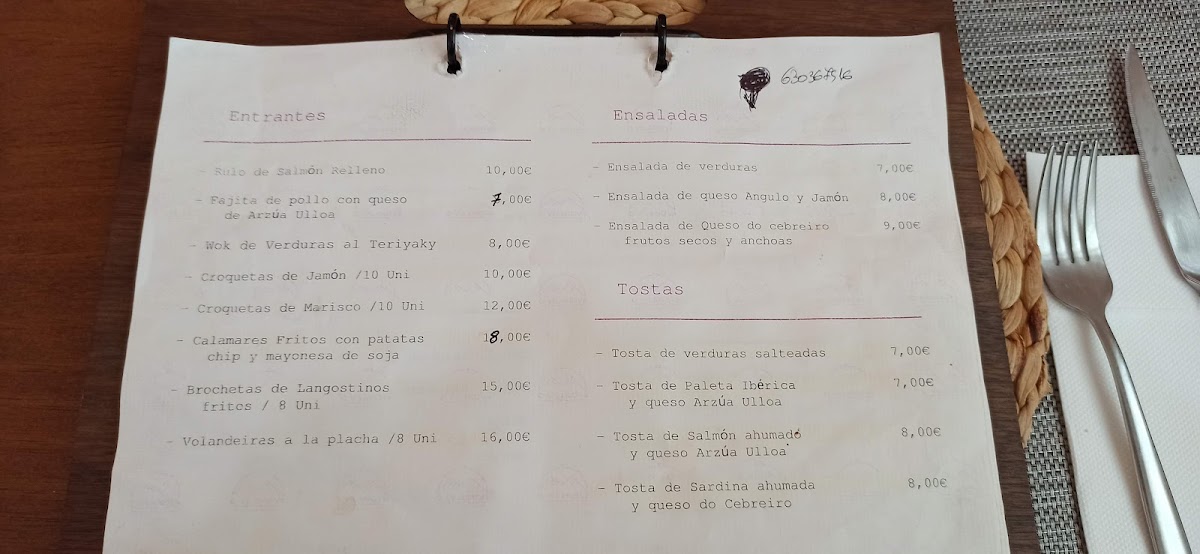 630367516
Entrantes
- Rulo de Salmón Relleno 10,00€
- Fajita de pollo con queso 7,00€
de Arzúa Ulloa
- Wok de Verduras al Teriyaky 8,00€
- Croquetas de Jamón /10 Uni 10,00€
- Croquetas de Marisco /10 Uni 12,00€
- Calamares Fritos con patatas 18,00€
chip y mayonesa de soja
- Brochetas de Langostinos 15,00€
fritos / 8 Uni
- Volandeiras a la placha /8 Uni 16,00€
Ensaladas
- Ensalada de verduras 7,00€
- Ensalada de queso Angulo y Jamón 8,00€
- Ensalada de Queso do cebreiro 9,00€
frutos secos y anchoas
Tostas
- Tosta de verduras salteadas 7,00€
- Tosta de Paleta Ibérica 7,00€
y queso Arzúa Ulloa
- Tosta de Salmón ahumado 8,00€
y queso Arzúa Ulloa
- Tosta de Sardina ahumada 8,00€
y queso do Cebreiro